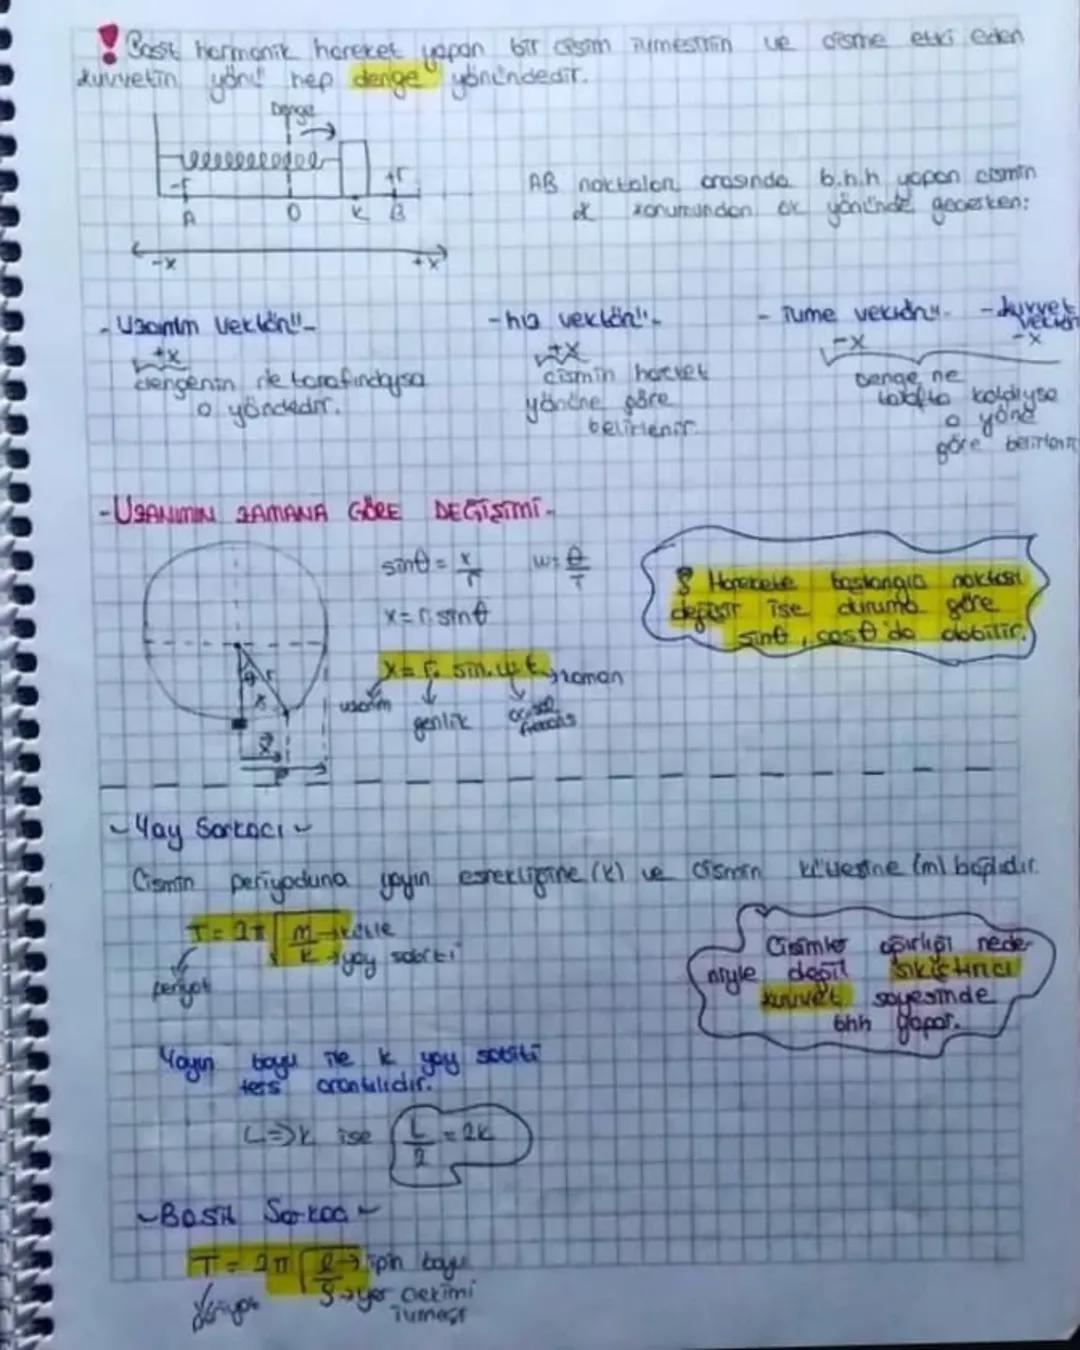 ! Basit harmonik hareket yapan bir cisim ivmesinin ve cisme etki eden
kuvvetin yönü hep denge yönündedir.
Denge
-r
+r
A O K B
-x +x
AB noktaları arasında b.h.h yapan cismin
K konumundan ok yönünde geçerken:
- Uzanım Vektörü -
+x
dengenin ne tarafındaysa
o yöndedir.
- hız vektörü -
+x
cismin hareket
yönüne göre
belirlenir.
- ivme vektörü -
-x
- kuvvet vektörü
-x
Denge ne
tarafta kaldıysa
o yöne
göre belirlenir
- UZANIMIN ZAMANA GÖRE DEĞİŞİMİ -
θ r
x
sinθ = x/r w = θ/T
x = r. sinθ
x = r. sin.w.t → zaman
uzanım
genlik
açısal frekans
Harekete başlangıç noktası
değişir ise duruma göre
sinθ, cosθ'da olabilir.
~ Yay Sarkacı ~
Cismin periyoduna yayın esnekliğine (k) ve cismin kütlesine (m) bağlıdır.
T = 2π √m/k
→ kütle
→ yay sabiti
periyot
Cisimler ağırlığı nede-
niyle değil sıkıştırıcı
kuvvet sayesinde
bhh yapar.
Yayın boyu ile k yay sabiti
ters orantılıdır.
L => k ise L/2 = 2k
~ Basit Sarkaç ~
T = 2π √l/g
→ ipin boyu
→ yer çekimi
ivmesi
Periyot